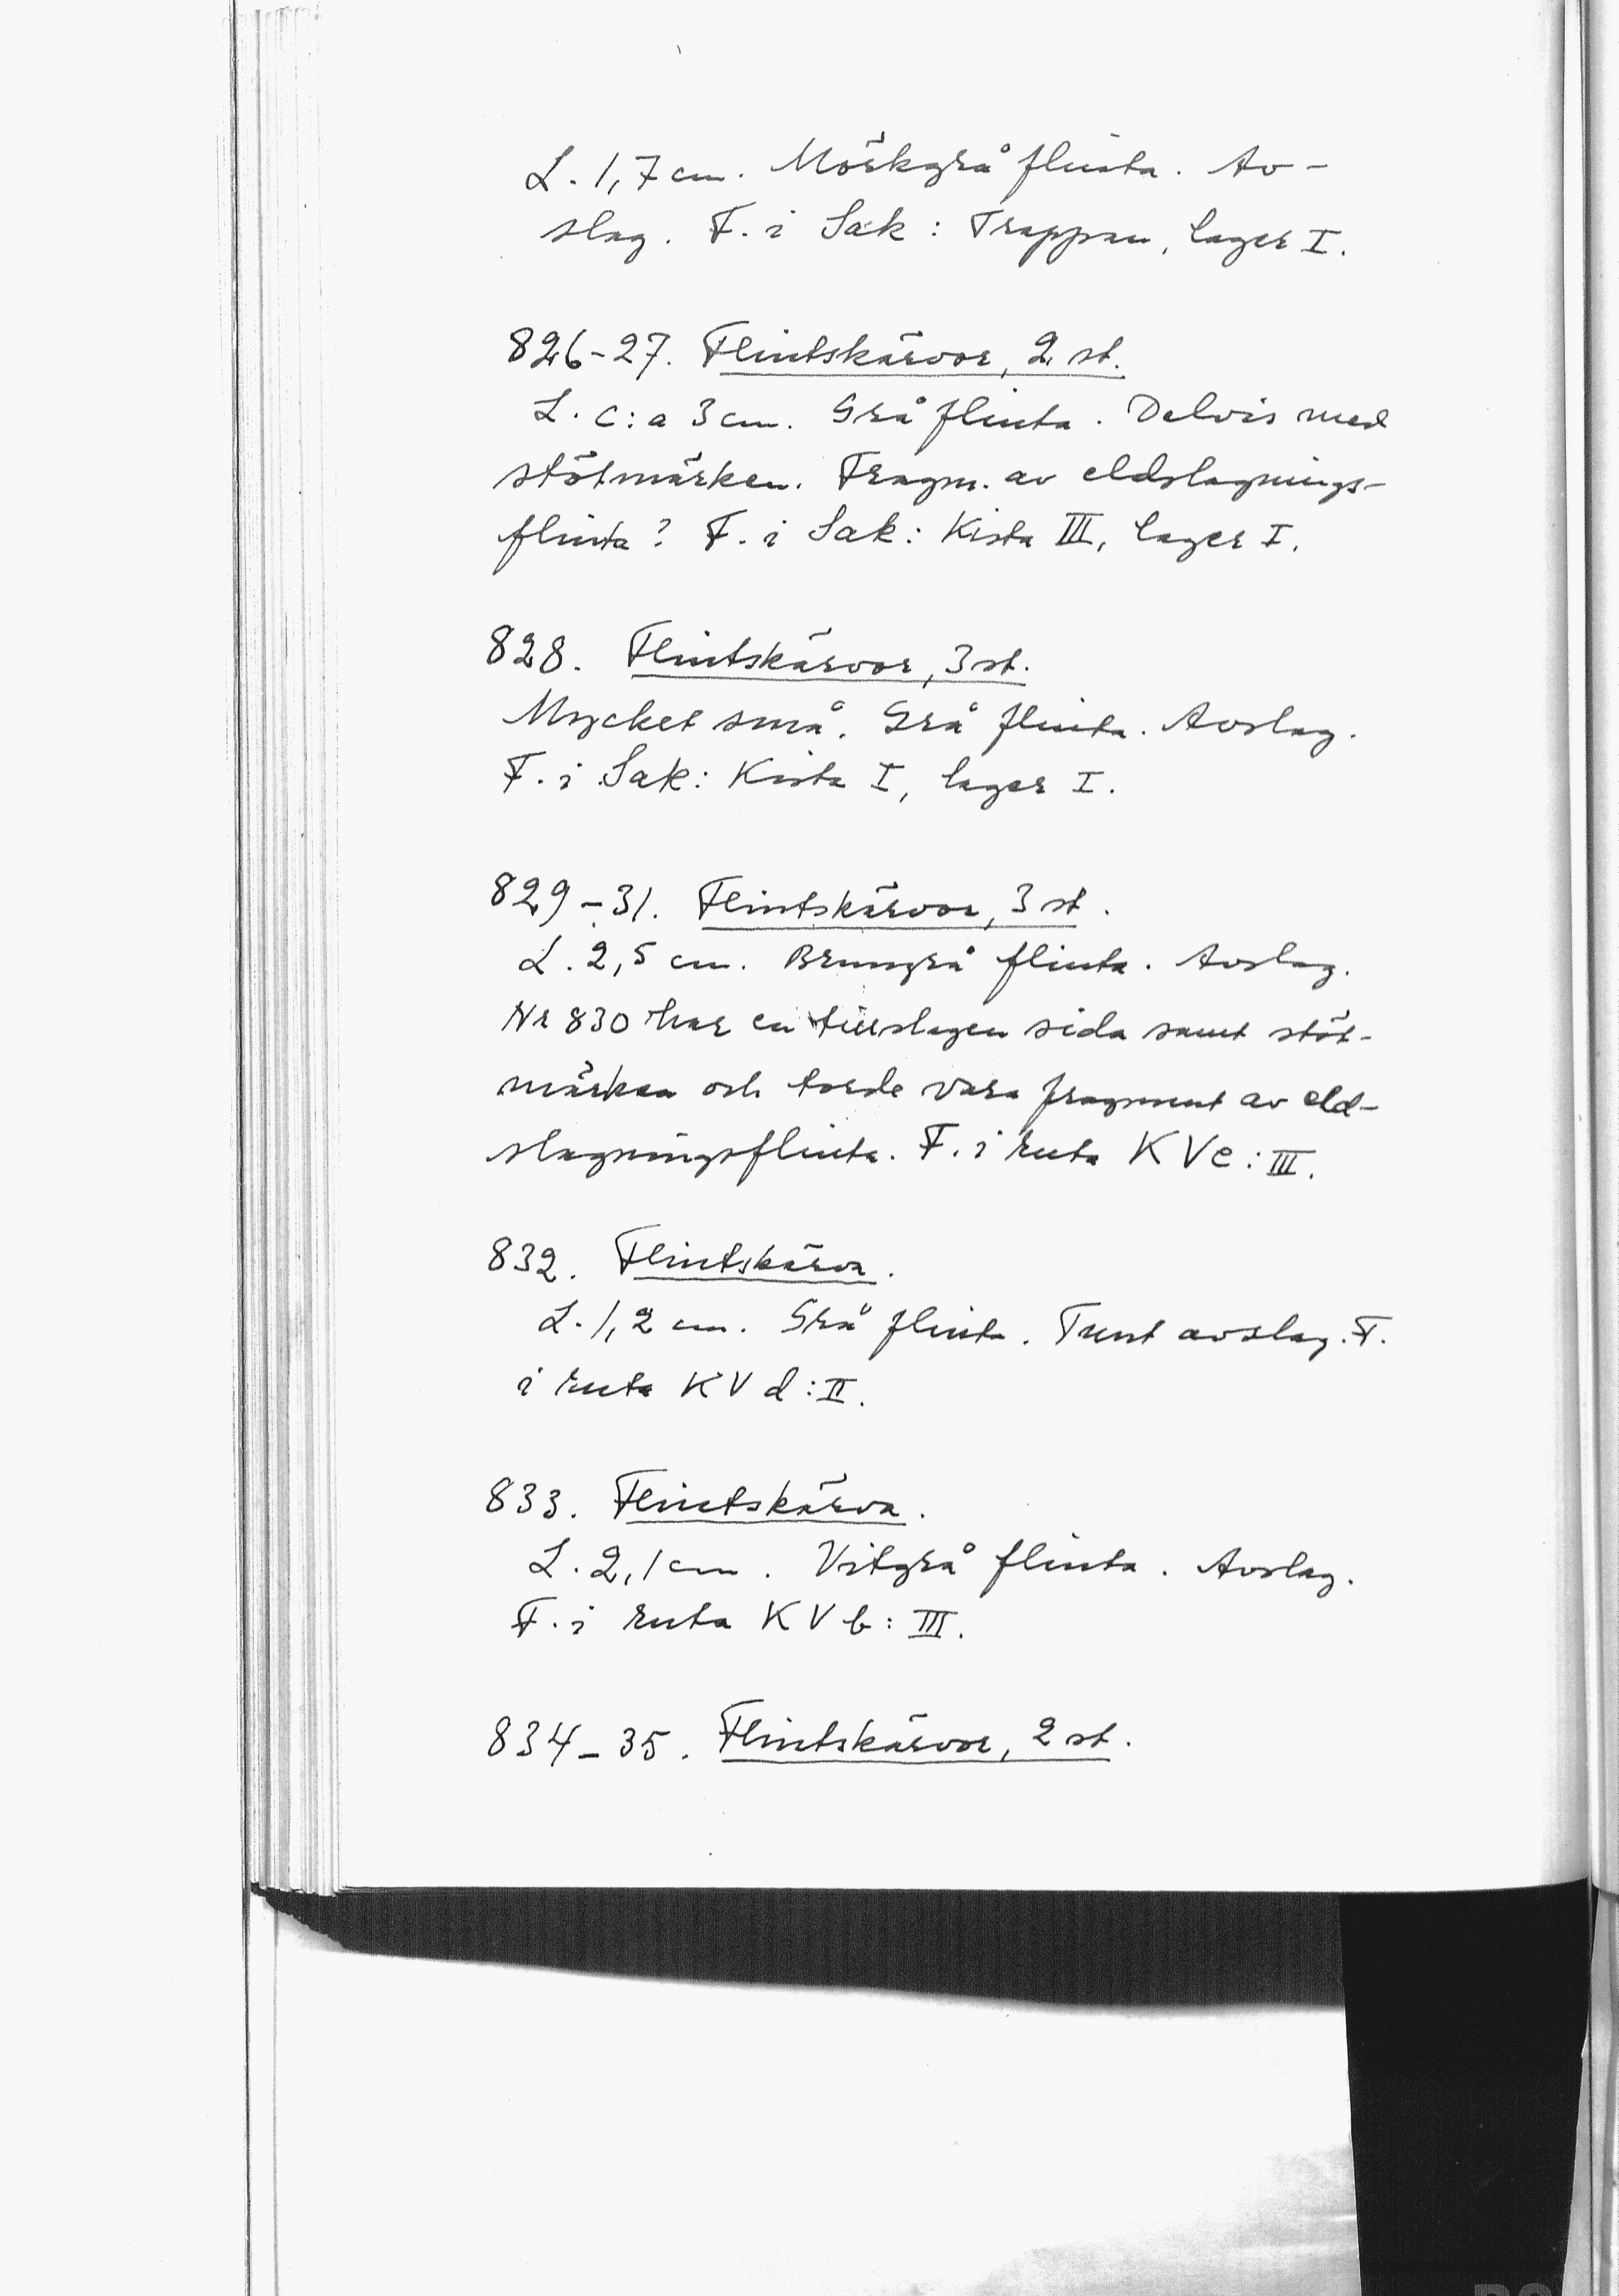 L. 1,7 cm. Mörkgrå flinta. Av-
slag. F. i Sak: Trappan, lager I.
826-27. Flintskärvor, 2 st.
L. c:a 3 cm. Grå flinta. Delvis med
stötmärken. Fragm. av eldslagnings-
flinta? F. i Sak: Kista III, lager I.
828. Flintskärvor, 3 st.
Mycket små. Grå flinta. Avslag.
F. i Sak: Kista I, lager I.
829-31. Flintskärvor, 3 st.
L. 2,5 cm. Brungrå flinta. Avslag.
Nr 830 har en tillslagen sida samt stöt-
märken och torde vara fragment av eld-
slagningsflinta. F. i ruta K V e: III.
832. Flintskärva.
L. 1,2 cm. Grå flinta. Tunt avslag. F.
i ruta K V d: II.
833. Flintskärva.
L. 2,1 cm. Vitgrå flinta. Avslag.
F. i ruta K V b: III.
834-35. Flintskärvor, 2 st.